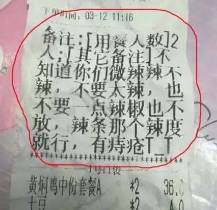 下单时间:03-12 11:16
备注:[用餐人数]2
人;[其它备注]不
知道你们微辣辣不
辣，不要太辣，也
不要一点辣椒也不
放，辣条那个辣度
就行，有痔疮T_T
1号口袋
黄焖鸡中份套餐A
x2
36.0
土豆
x2
4.0